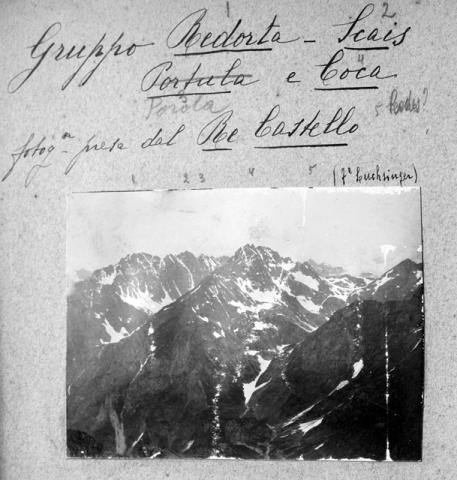 1 2
Gruppo Redorta - Scais
4
Portula e Coca
Porola 5 Rodes?
fotog.ª presa dal Re Castello
1 2 3 4 5 (fª Luchsinger)